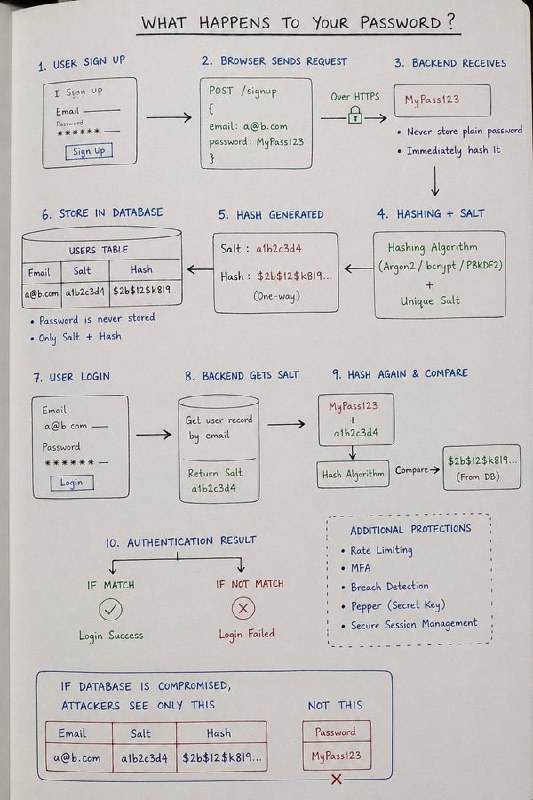 WHAT HAPPENS TO YOUR PASSWORD?
1. USER SIGN UP
I Sign up
Email
Password
******
Sign Up
2. BROWSER SENDS REQUEST
POST /signup
{
email: a@b.com
password: MyPass123
}
Over HTTPS
3. BACKEND RECEIVES
MyPass123
• Never store plain password
• Immediately hash it
4. HASHING + SALT
Hashing Algorithm
(Argon2 / bcrypt / PBKDF2)
+
Unique Salt
5. HASH GENERATED
Salt : a1b2c3d4
Hash : $2b$12$k8l9...
(One-way)
6. STORE IN DATABASE
USERS TABLE
Email Salt Hash
a@b.com a1b2c3d4 $2b$12$k8l9...
• Password is never stored
• Only Salt + Hash
7. USER LOGIN
Email
a@b com
Password
******
Login
8. BACKEND GETS SALT
Get user record
by email
Return Salt
a1b2c3d4
9. HASH AGAIN & COMPARE
MyPass123
+
a1b2c3d4
Hash Algorithm
Compare
$2b$12$k8l9...
(From DB)
10. AUTHENTICATION RESULT
IF MATCH
Login Success
IF NOT MATCH
Login Failed
ADDITIONAL PROTECTIONS
• Rate Limiting
• MFA
• Breach Detection
• Pepper (Secret Key)
• Secure Session Management
IF DATABASE IS COMPROMISED,
ATTACKERS SEE ONLY THIS
Email Salt Hash
a@b.com a1b2c3d4 $2b$12$k8l9...
NOT THIS
Password
MyPass123